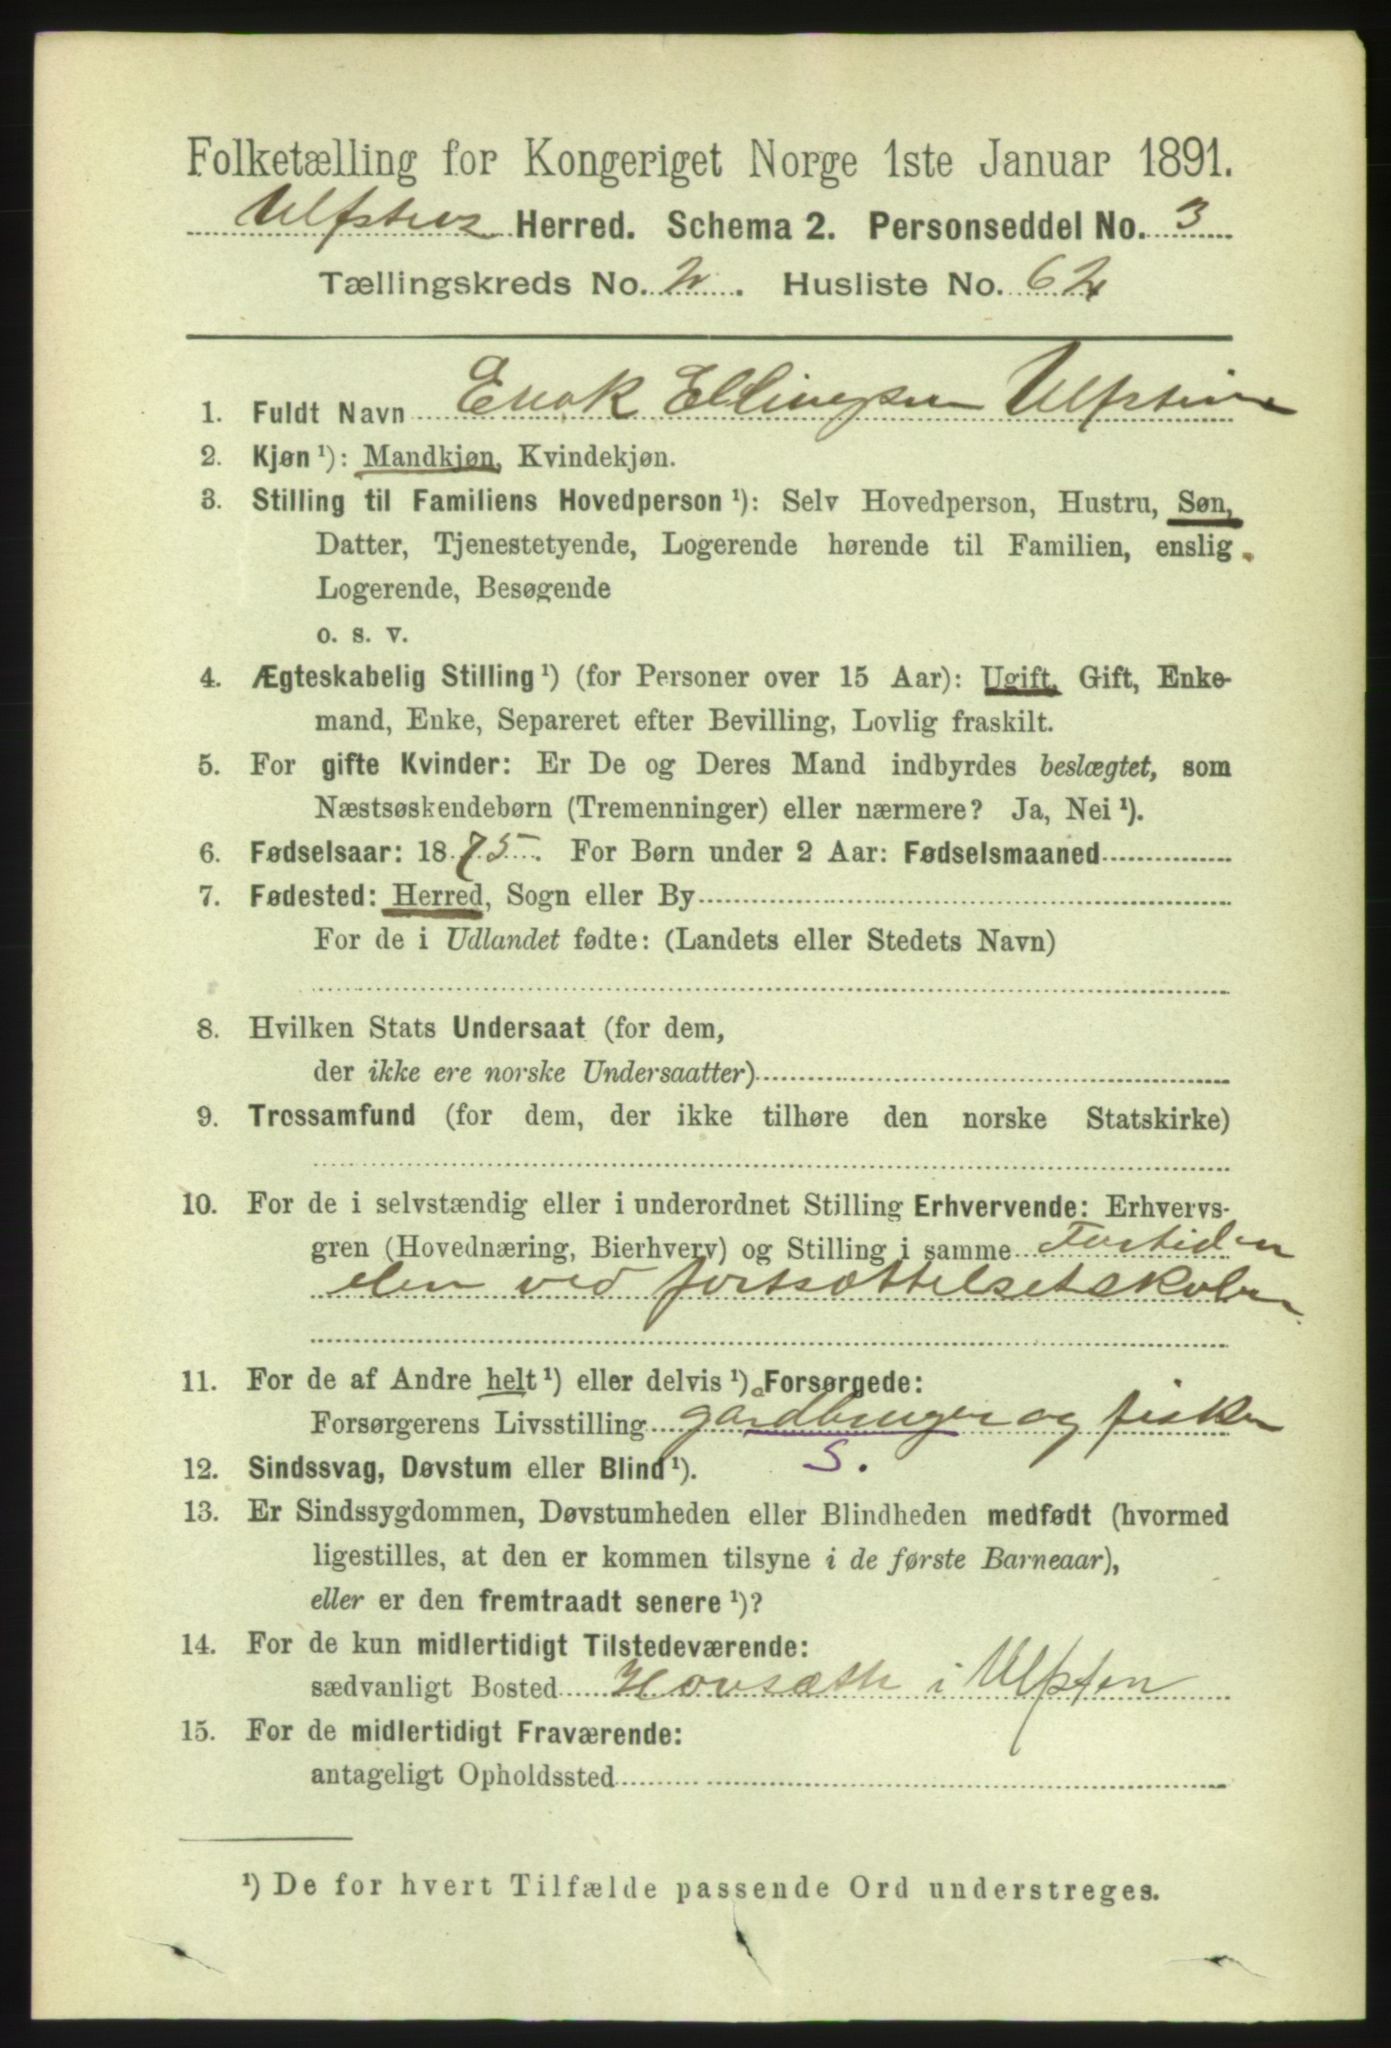 Folketælling for Kongeriget Norge 1ste Januar 1891.
Ulfsten Herred. Schema 2. Personseddel No. 3
Tællingskreds No. 2. Husliste No. 62
1. Fuldt Navn Enok Ellingsen Ulfstein
2. Kjøn ¹): Mandkjøn, Kvindekjøn.
3. Stilling til Familiens Hovedperson ¹): Selv Hovedperson, Hustru, Søn,
Datter, Tjenestetyende, Logerende hørende til Familien, enslig
Logerende, Besøgende
o. s. v.
4. Ægteskabelig Stilling ¹) (for Personer over 15 Aar): Ugift, Gift, Enke-
mand, Enke, Separeret efter Bevilling, Lovlig fraskilt.
5. For gifte Kvinder: Er De og Deres Mand indbyrdes beslægtet, som
Næstsøskendebørn (Tremenninger) eller nærmere? Ja, Nei ¹).
6. Fødselsaar: 1875. For Børn under 2 Aar: Fødselsmaaned
7. Fødested: Herred, Sogn eller By
For de i Udlandet fødte: (Landets eller Stedets Navn)
8. Hvilken Stats Undersaat (for dem,
der ikke ere norske Undersaatter)
9. Trossamfund (for dem, der ikke tilhøre den norske Statskirke)
10. For de i selvstændig eller i underordnet Stilling Erhvervende: Erhvervs-
gren (Hovednæring, Bierhverv) og Stilling i samme Fortiden
elev ved fortsættelsetskolen
11. For de af Andre helt ¹) eller delvis ¹) Forsørgede:
Forsørgerens Livsstilling gardbruger og fisker
12. Sindssvag, Døvstum eller Blind ¹). S.
13. Er Sindssygdommen, Døvstumheden eller Blindheden medfødt (hvormed
ligestilles, at den er kommen tilsyne i de første Barneaar),
eller er den fremtraadt senere ¹)?
14. For de kun midlertidigt Tilstedeværende:
sædvanligt Bosted Hovsæth i Ulfsten
15. For de midlertidigt Fraværende:
antageligt Opholdssted
¹) De for hvert Tilfælde passende Ord understreges.